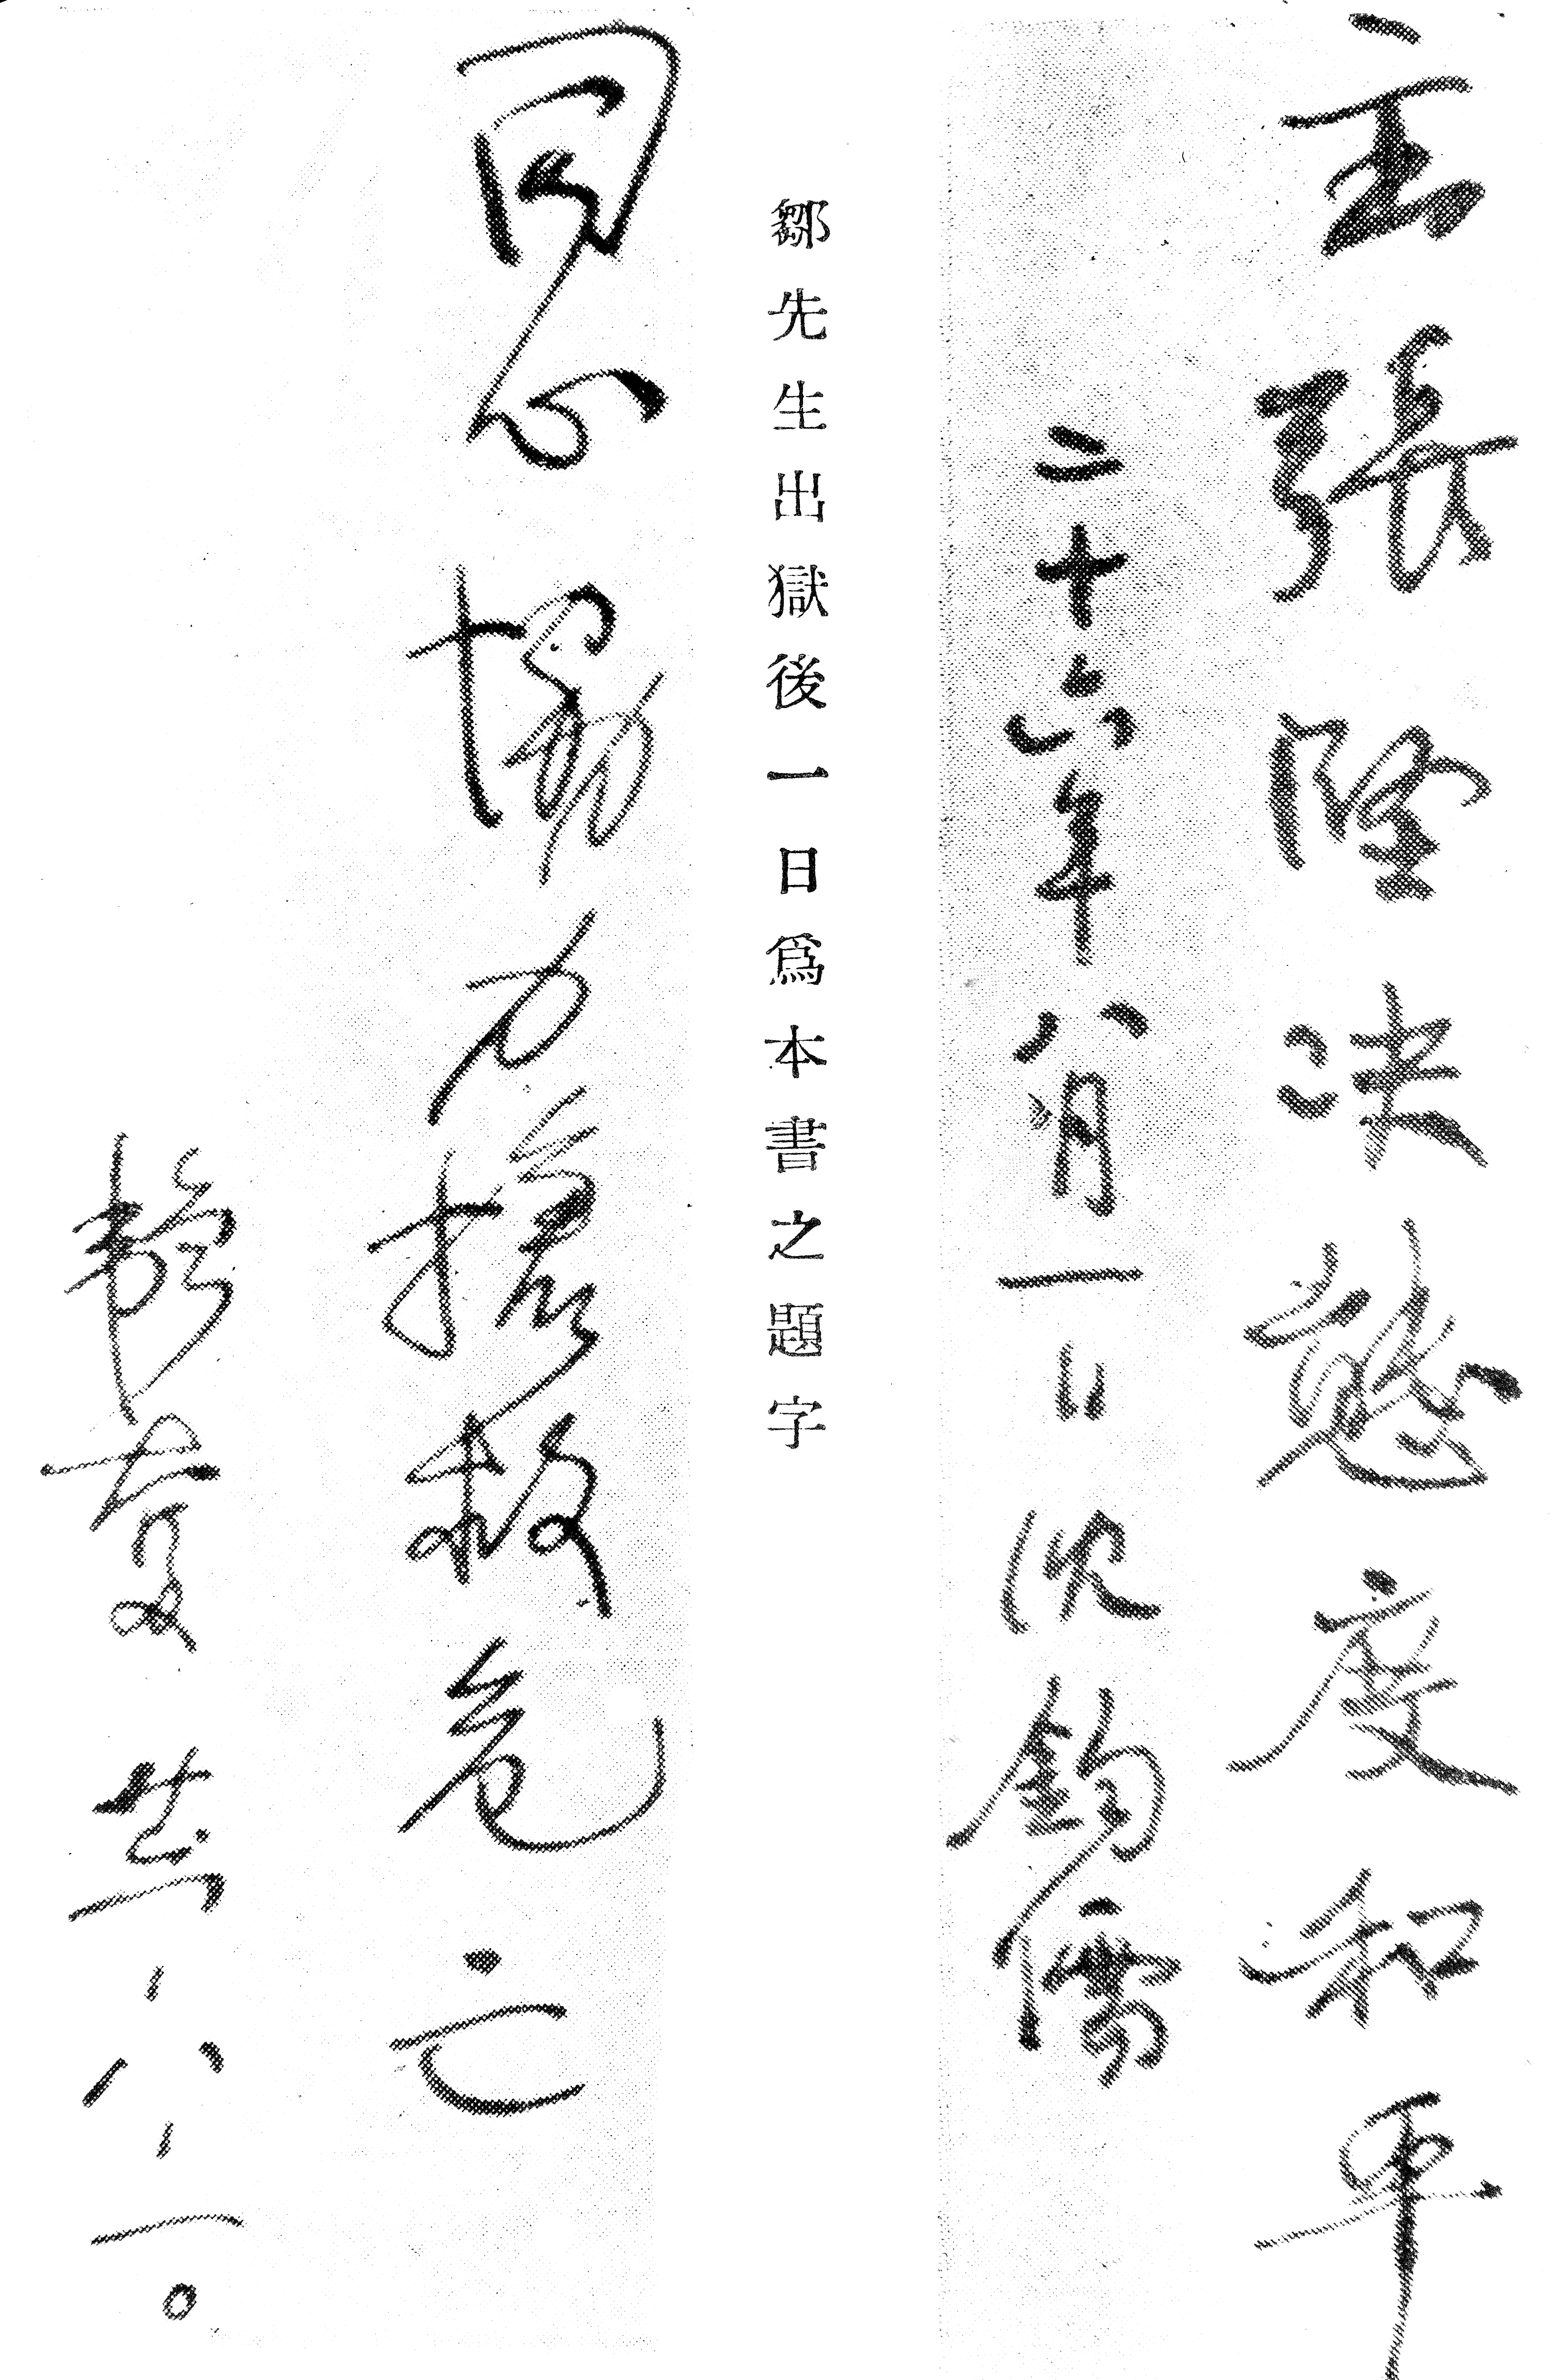 主張堅決態度和平
二十六年八月一日 沈鈞儒
鄒先生出獄後一日爲本書之題字
同心協力搶救危亡
韜奮 廿六、八、一。